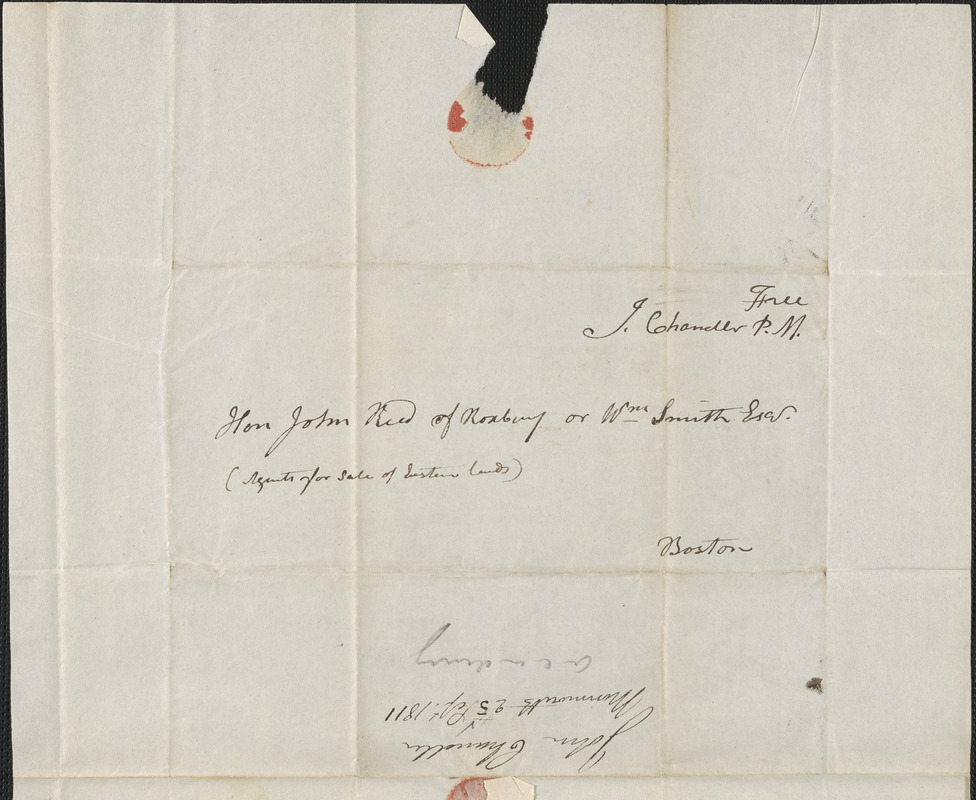 Free
J. Chandler P.M.
Hon John Read of Roxbury or Wm Smith Esqr.
(Agents for Sale of Eastern Lands)
Boston
John Chandler
Monmouth 25th Sept. 1811
academy